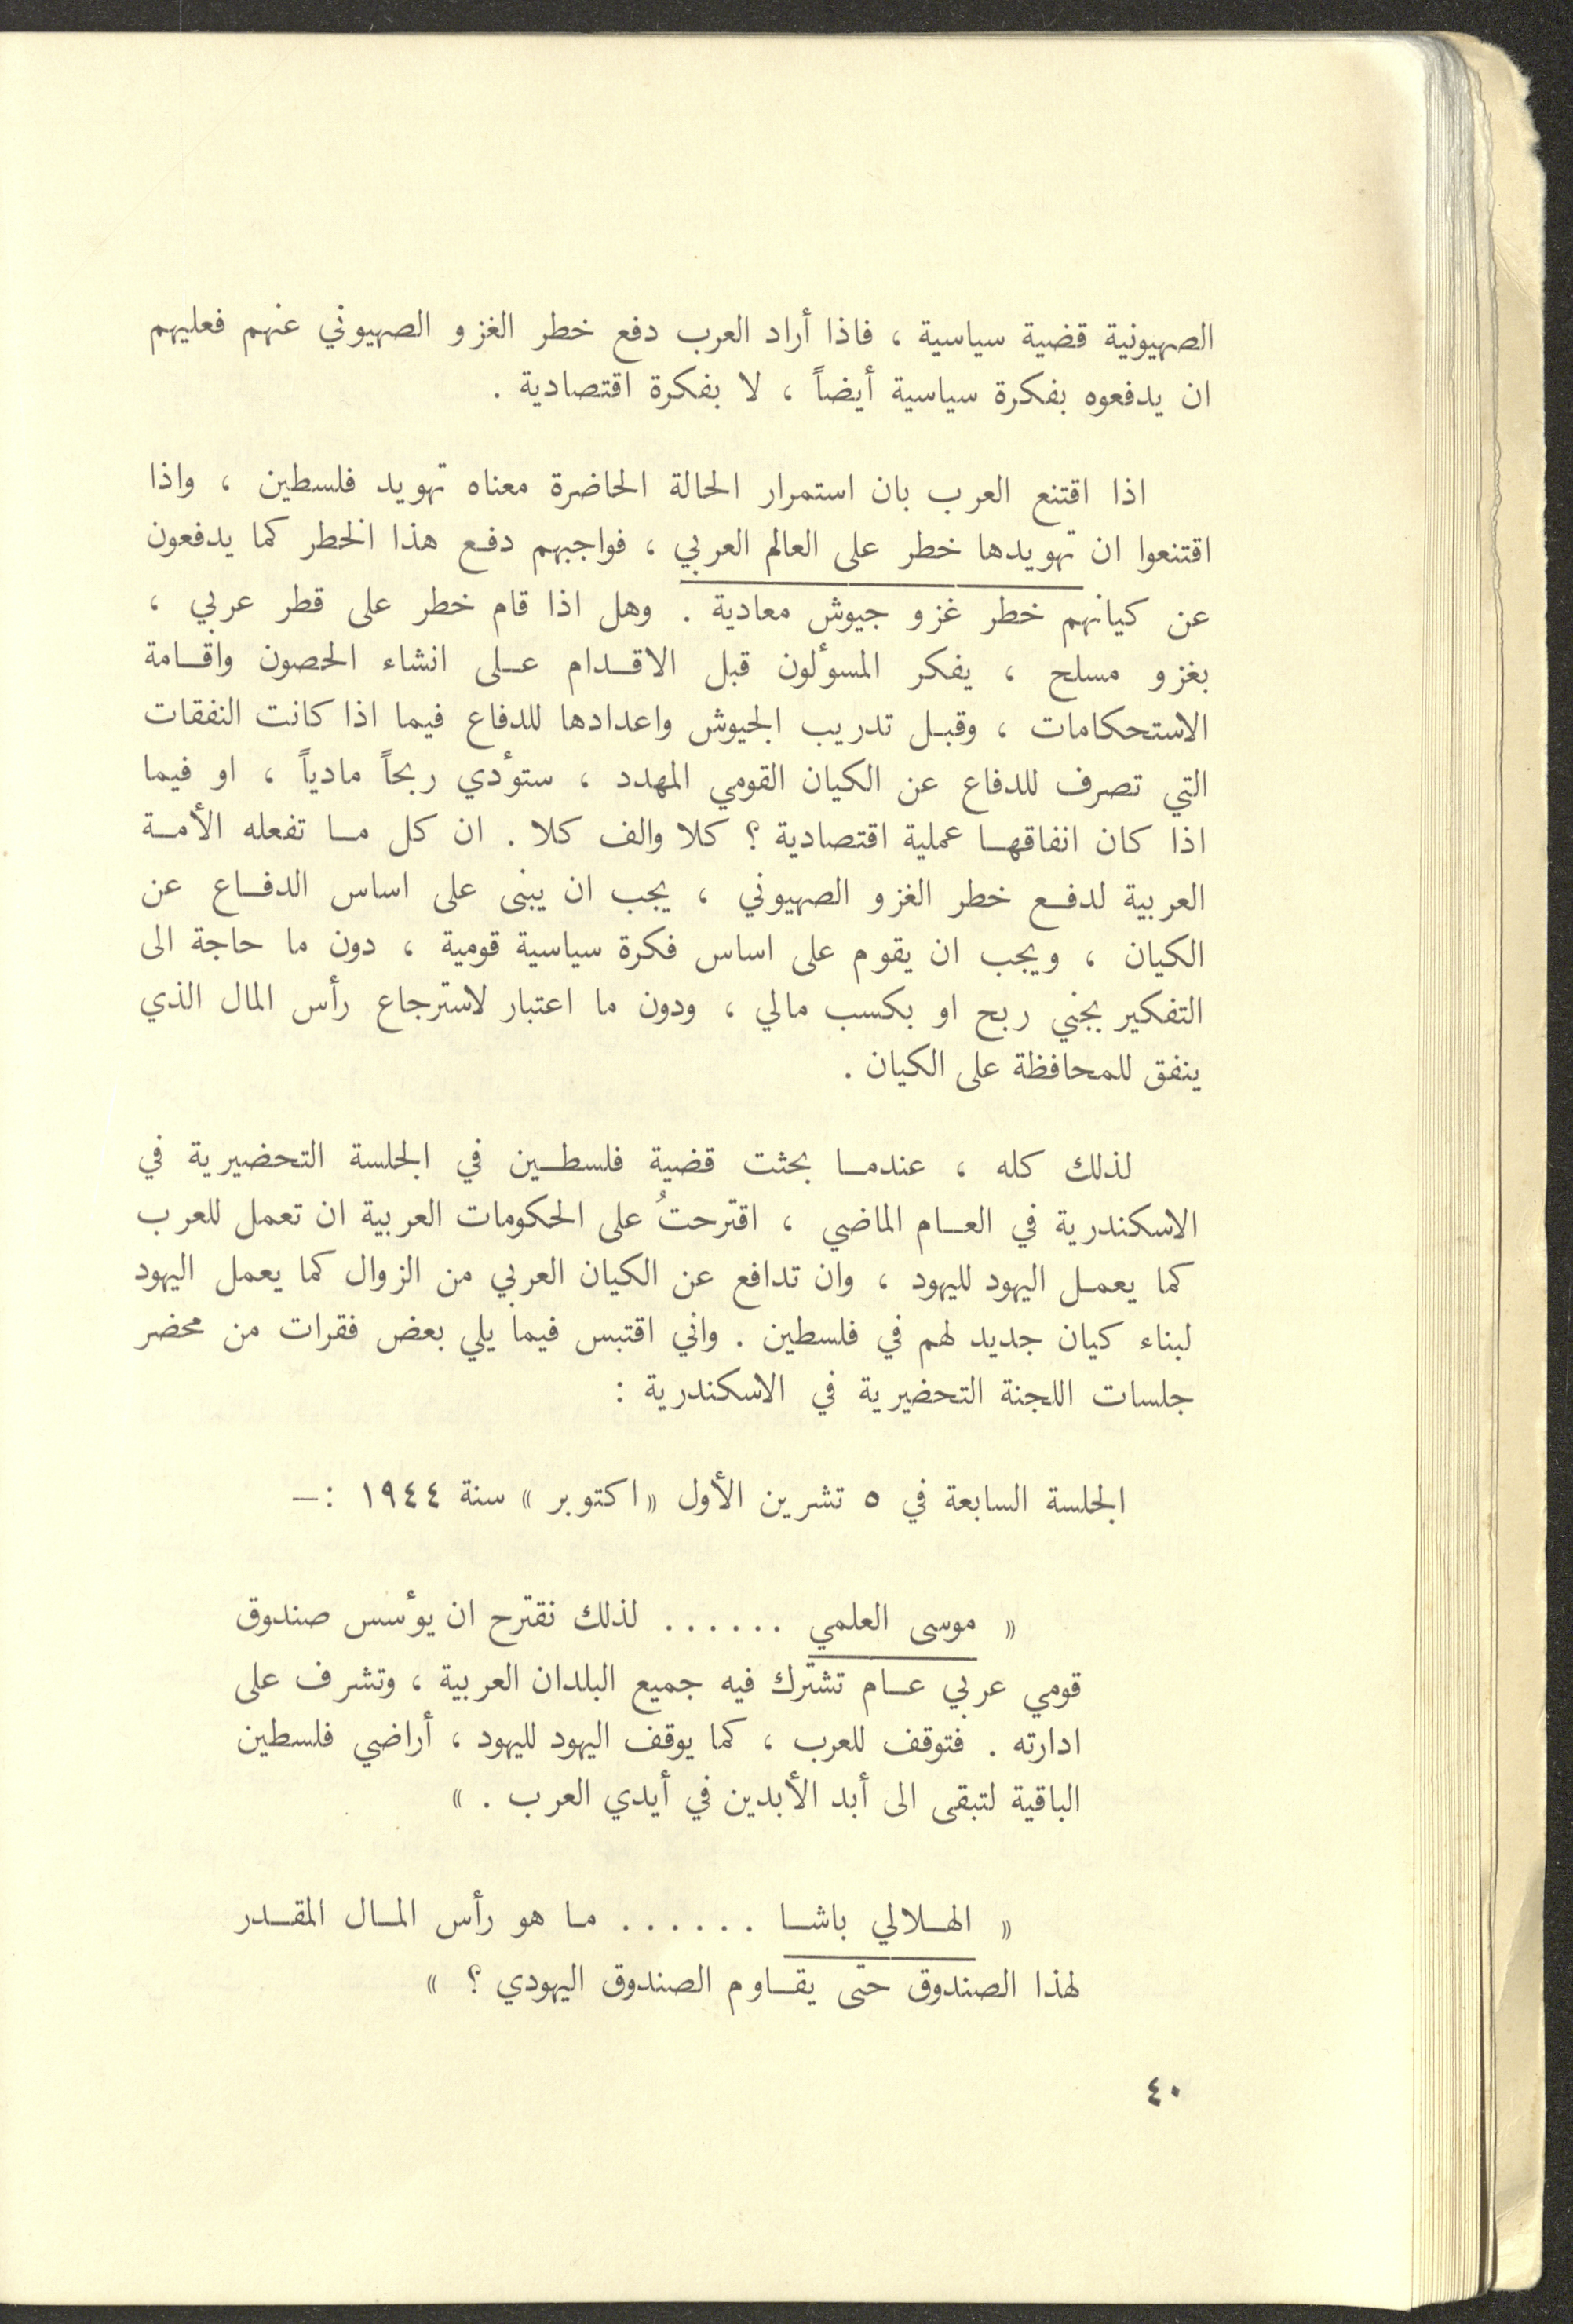 الصهيونية قضية سياسية ، فاذا أراد العرب دفع خطر الغزو الصهيوني عنهم فعليهم
ان يدفعوه بفكرة سياسية أيضاً ، لا بفكرة اقتصادية .
اذا اقتنع العرب بان استمرار الحالة الحاضرة معناه تهويد فلسطين ، واذا
اقتنعوا ان تهويدها خطر على العالم العربي ، فواجبهم دفع هذا الخطر كما يدفعون
عن كيانهم خطر غزو جيوش معادية . وهل اذا قام خطر على قطر عربي ،
بغزو مسلح ، يفكر المسؤلون قبل الاقدام على انشاء الحصون واقامة
الاستحكامات ، وقبل تدريب الجيوش واعدادها للدفاع فيما اذا كانت النفقات
التي تصرف للدفاع عن الكيان القومي المهدد ، ستؤدي ربحاً مادياً ، او فيما
اذا كان انفاقها عملية اقتصادية ؟ كلا والف كلا . ان كل ما تفعله الأمة
العربية لدفع خطر الغزو الصهيوني ، يجب ان يبنى على اساس الدفاع عن
الكيان ، ويجب ان يقوم على اساس فكرة سياسية قومية ، دون ما حاجة الى
التفكير بجني ربح او بكسب مالي ، ودون ما اعتبار لاسترجاع رأس المال الذي
ينفق للمحافظة على الكيان .
لذلك كله ، عندما بحثت قضية فلسطين في الجلسة التحضيرية في
الاسكندرية في العام الماضي ، اقترحتُ على الحكومات العربية ان تعمل للعرب
كما يعمل اليهود لليهود ، وان تدافع عن الكيان العربي من الزوال كما يعمل اليهود
لبناء كيان جديد لهم في فلسطين . واني اقتبس فيما يلي بعض فقرات من محضر
جلسات اللجنة التحضيرية في الاسكندرية :
الجلسة السابعة في ٥ تشرين الأول « اكتوبر » سنة ١٩٤٤ :—
« موسى العلمي ...... لذلك نقترح ان يؤسس صندوق
قومي عربي عام تشترك فيه جميع البلدان العربية ، وتشرف على
ادارته . فتوقف للعرب ، كما يوقف اليهود لليهود ، أراضي فلسطين
الباقية لتبقى الى أبد الأبدين في أيدي العرب . »
« الهلالي باشا ...... ما هو رأس المال المقدر
لهذا الصندوق حتى يقاوم الصندوق اليهودي ؟ »
٤٠